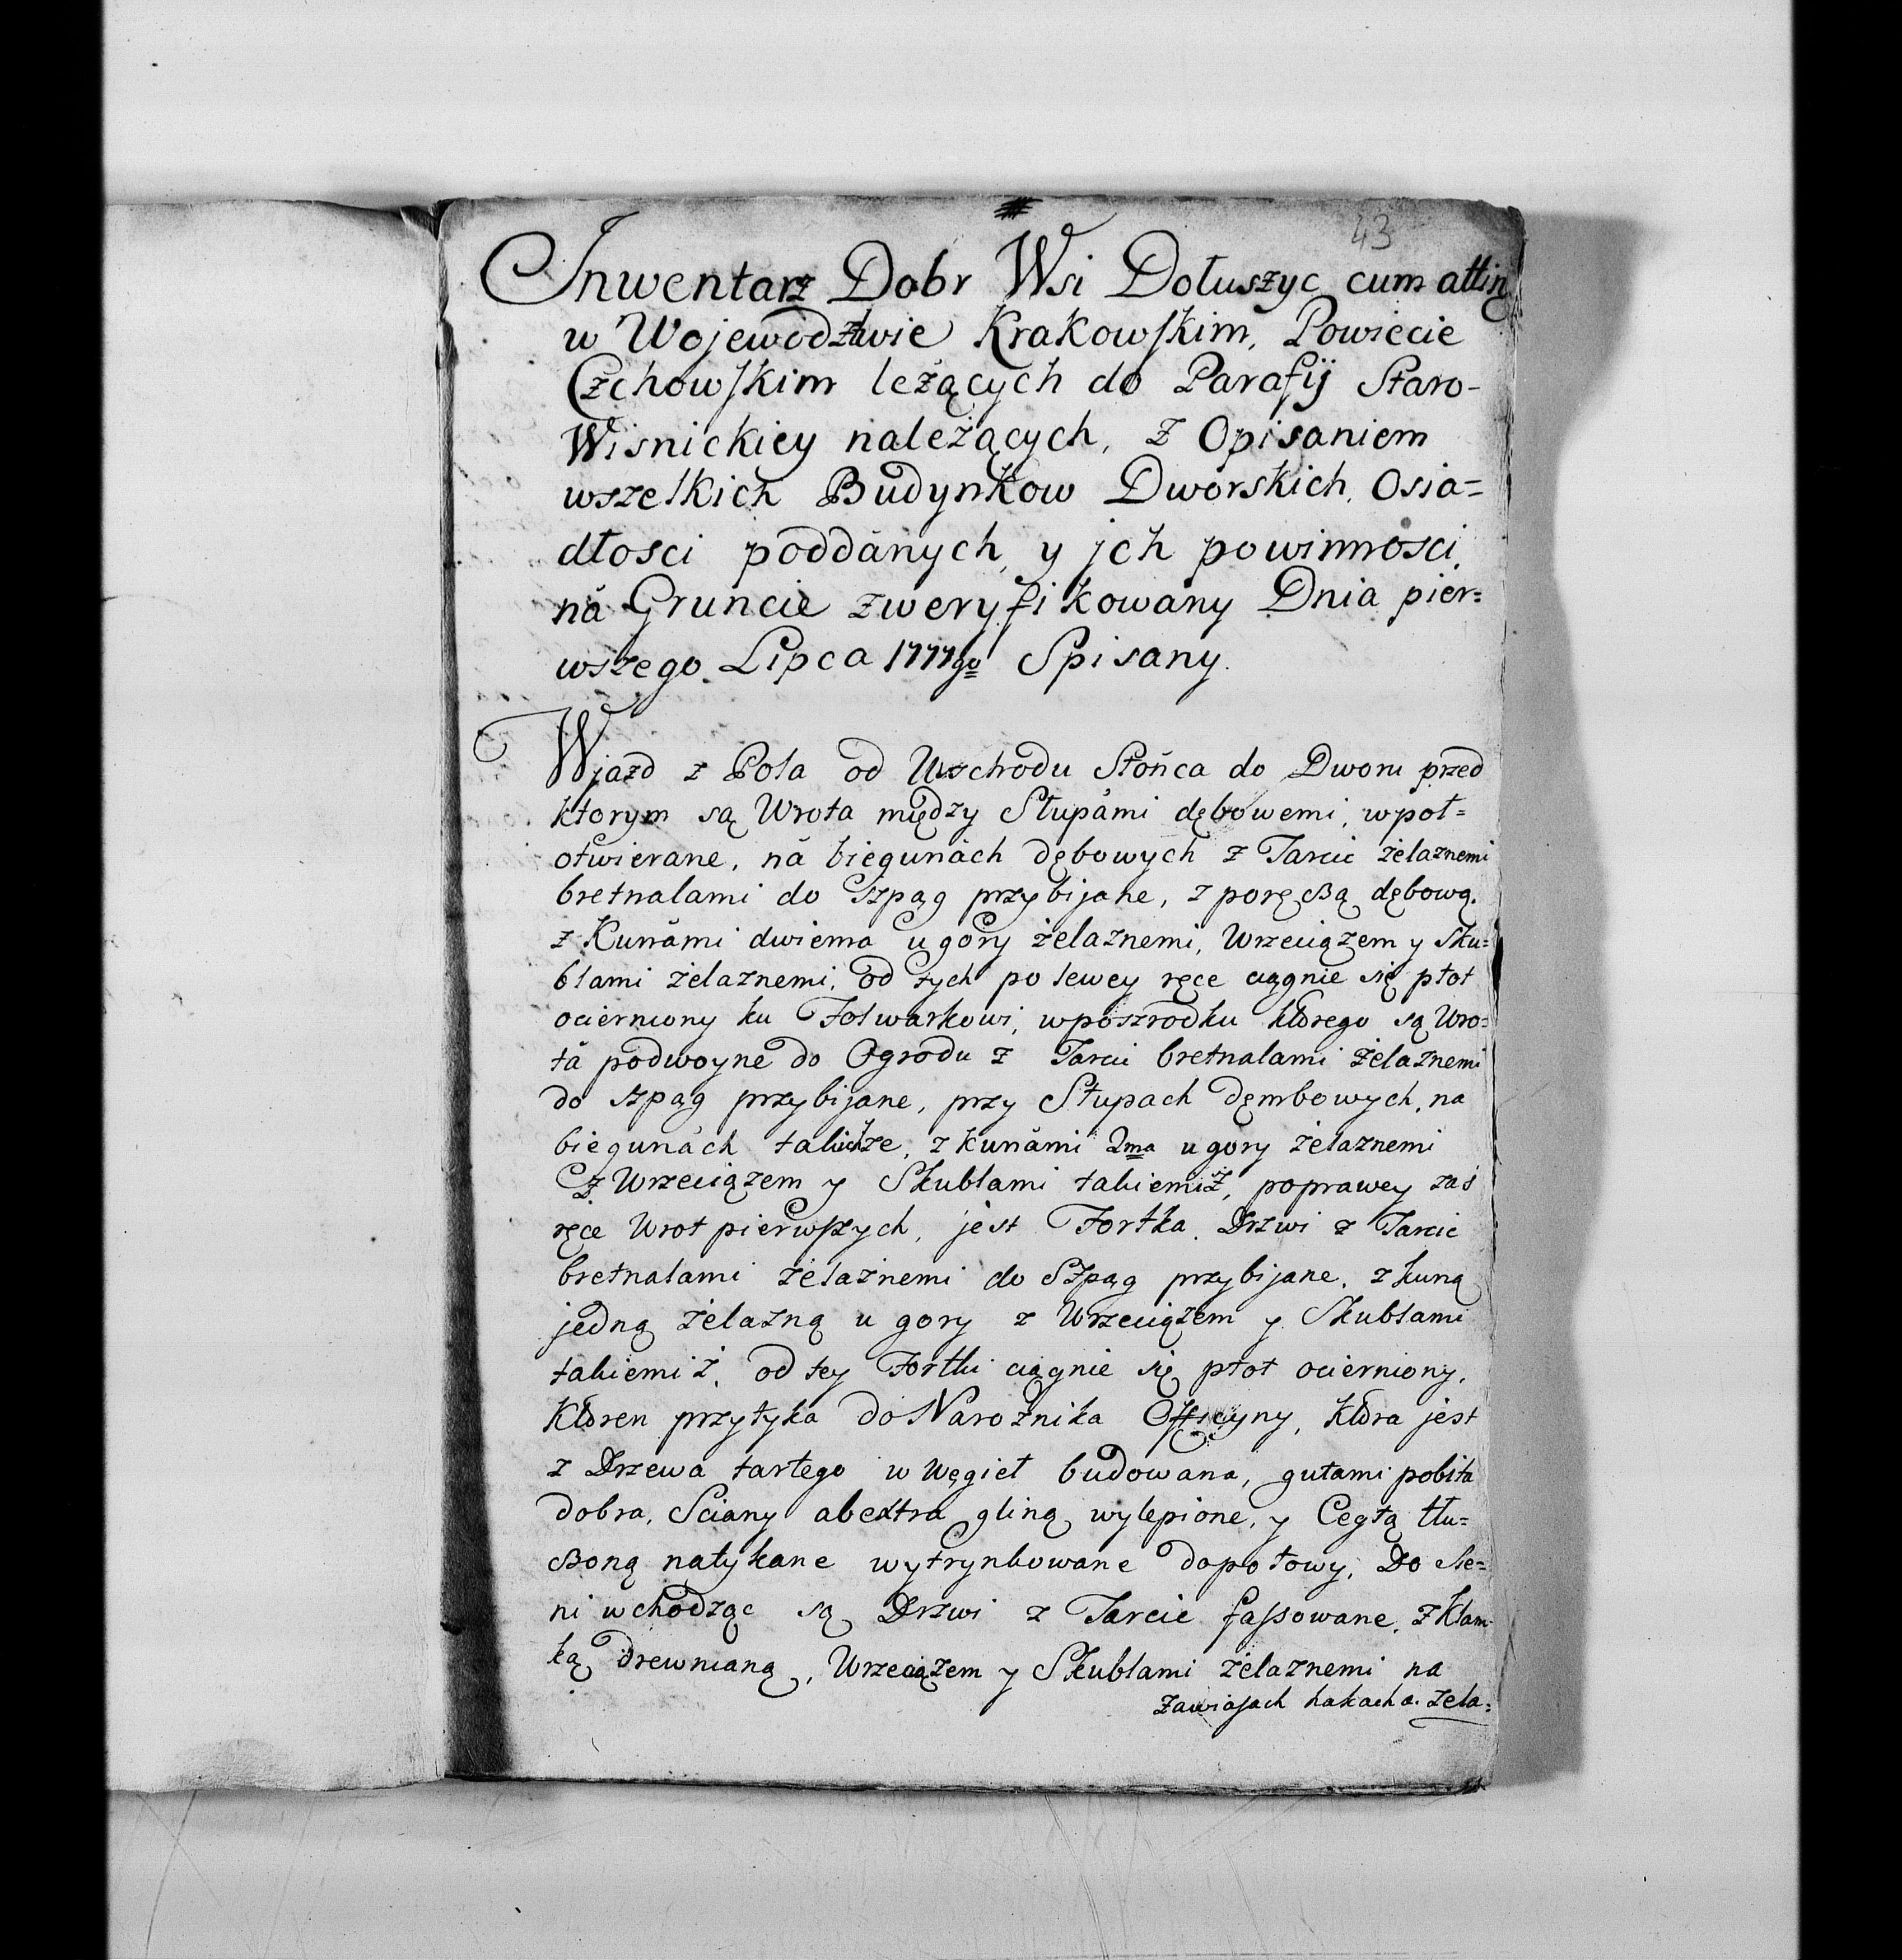 43
Inwentarz Dobr Wsi Dołuszyc cum attin
w Wojewodztwie Krakowskim, Powiecie
Czchowskim leżących do Parafij Staro-
Wisnickiey należących, z Opisaniem
wszelkich Budynkow Dworskich, Osia=
dłosci poddánych, y jch powinnosci,
ná Gruncie zweryfikowany Dnia pier=
wszego Lipca 1777go Spisany.
Wjazd z Pola od Wschodu Słońca do Dworu przed
ktorym są Wrota między Słupámi dębowemi, wpoł=
otwierane, ná biegunách dębowych z Tarcic żelaznemi
bretnalami do szpąg przybijane, z poręczą dębową.
z Kunámi dwiema u gory żelaznemi, Wrzeciązem y Sku=
blami żelaznemi, od tych po lewey ręce ciągnie się płot
ocierniony ku Folwarkowi, wposzrodku ktorego są Wro=
tá podwoyne do Ogrodu z Tarcic bretnalami żelaznemi
do szpąg przybijane, przy Słupach dęmbowych, na
biegunách takichże, z kunámi 2ma u gory żelaznemi
z Wrzeciązem y Skublami takiemisz, poprawey zaś
ręce Wrot pierwszych, jest Fortka. Drzwi z Tarcic
bretnalami żelaznemi do Szpąg przybijane, z kuną
jedną żelazną u gory z Wrzeciązem y Skublami
takiemiż, od tey Fortki ciągnie się płot ocierniony,
Ktoren przytyka do Narożnika Officyny, Ktora jest
z Drzewa tartego w węgieł budowana, gutami pobita
dobra, Sciany abextra gliną wylepione, y Cegłą tłu=
czoną natykane wytrynkowane dopołowy, Do Sie=
ni wchodząc są Drzwi z Tarcic fassowane, z Klam-
ką drewnianą, Wrzeciązem y Skublami żelaznemi na
zawiasach hakach a. żela=